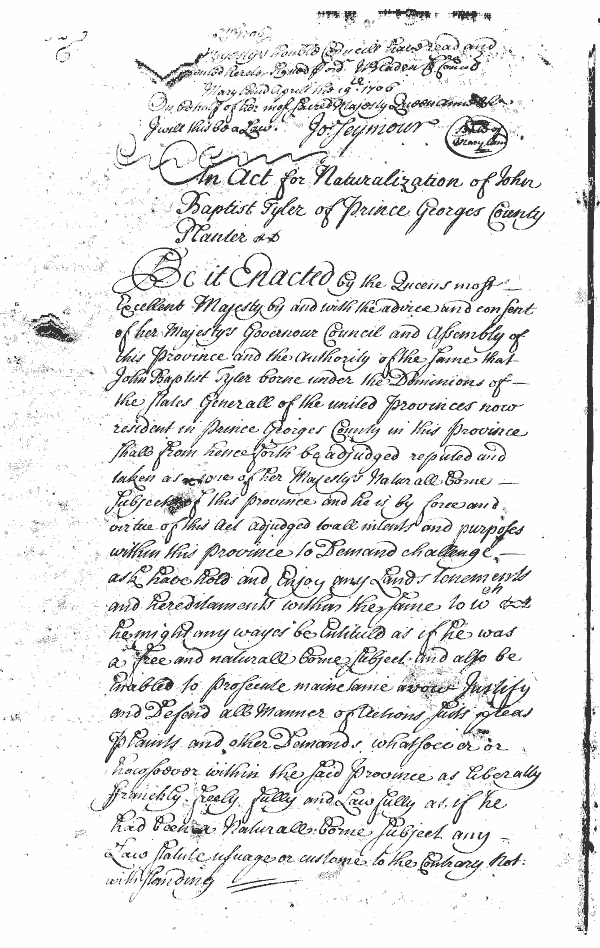 Majestys honble Councill have read and
hereto Signed p ordr W Bladen Cl Council
Maryland Aprill the 19th 1706
On behalf of her most Sacred Majesty Queen Anne &c
I will this be a Law. Jo: Seymour
Seale of
Mary Land
An Act for Naturalization of John
Baptist Tyler of Prince Georges County
Planter &c
Be it Enacted by the Queens most
Excellent Majesty by and with the advice and consent
of her Majestys Governour Council and Assembly of
this Province and the Authority of the same that
John Baptist Tyler borne under the Dominions of
the States Generall of the united Provinces now
resident in Prince Georges County in this Province
shall from hence forth be adjudged reputed and
taken as one of her Majestys Naturall borne
Subjects of this province and he is by force and
virtue of this Act adjudged to all intents and purposes
within this Province to Demand challenge
ask have hold and Enjoy any Lands Tenements
and hereditaments within the same to wch
he might any wayes be Entituled as if he was
a free and naturall borne subject and also be
Enabled to prosecute maintaine avow Justify
and Defend all Manner of Actions suits pleas
Plaints and other Demands whatsoever or
howsoever within the said Province as liberally
franckly freely fully and Lawfully as if he
had been a Naturall borne subject any
Law statute usuage or custome to the Contrary not:
withstanding